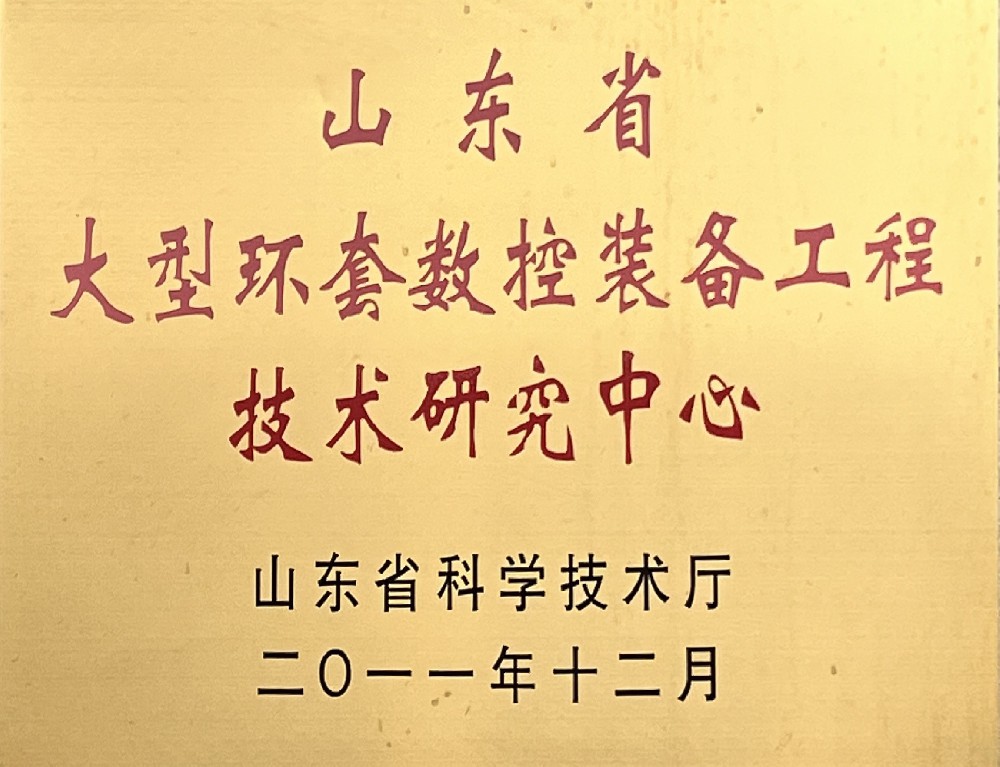 山东省
大型环套数控装备工程
技术研究中心
山东省科学技术厅
二〇一一年十二月